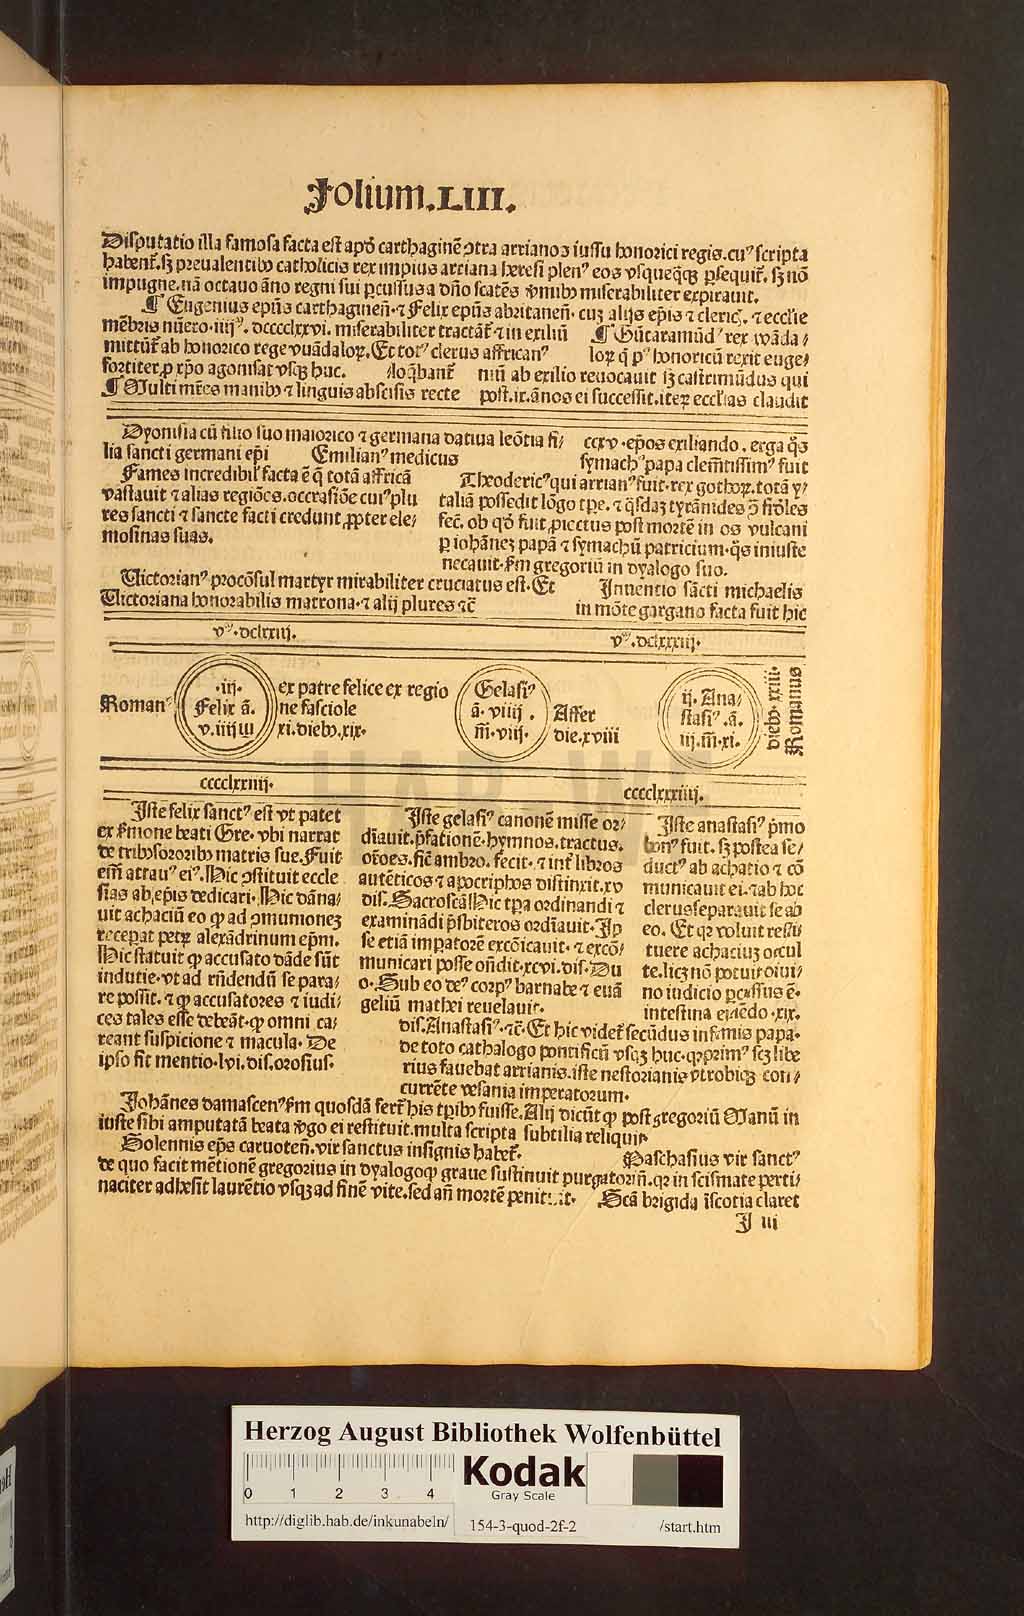 Folium.LIII.
Disputatio illa famosa facta est apō carthaginē ↄtra arrianoʒ iussu honorici regis.cuꝰ scripta
habent̃.sʒ preualentibꝰ catholicis rex impius arriana heresi plenꝰ eos vsqueq̃ʒ ꝑsequit̃. sʒ nō
impugne.nā octauo āno regni sui ꝑcussus a dño scatēs ṽmibꝰ miserabiliter expirauit.
¶ Eugenius ep̄us carthaginen̄.⁊ Felix ep̄us abritanen̄. cuʒ alijs ep̄is ⁊ cleric̃. ⁊ eccl̄ie
mēbris nūero.iiijᵒ. dccccclxxvi. miserabiliter tractāt̃ ⁊ in exiliū
mittūt̃ ab honorico rege vuādaloꝝ.Et totꝰ clerus affricanꝰ
fortiter ꝓ xp̄o agonisat vsqʒ huc. loq̄bant̃
¶ Multi mr̄es manibꝰ ⁊ linguis abscisis recte
¶ Gūtaramūdꝰ rex wāda/
loꝝ q̄ pꝰ honoricū rexit euge/
niū ab exilio reuocauit sʒ castrimūdus qui
post.ix.ānos ei successit.iteꝝ eccl̄ias claudit
Dyonisia cū filio suo maiorico ⁊ germana datiua leōtia fi/
lia sancti germani ep̄i Emilianꝰ medicus
Fames incredibil̄ facta ē q̄ totā affricā
vastauit ⁊ alias regiōes.occasiōe cuiꝰ plu
res sancti ⁊ sancte facti credunt ꝓpter ele/
mosinas suas.
ccxv.ep̄os exiliando. erga q̄s
symachꝰ papa clem̄tissimꝰ fuit
Theodericꝰ qui arrianꝰ fuit.rex gothoꝝ.totā y/
taliā possedit lōgo tp̄e. ⁊ q̄sdaʒ tyrānides ꝯ̄ fiꝺ̄les
fec̄. ob qꝺ̄ fuit ꝓiectus post mortē in os vulcani
ꝑ iohāneʒ papā ⁊ symachū patricium.q̄s iniuste
necauit.ẜm gregoriū in dyalogo suo.
Victorianꝰ procōsul martyr mirabiliter cruciatus est. Et
Victoriana honorabilis matrona.⁊ alij plures ⁊c̄
Inuentio sācti michaelis
in mōte gargano facta fuit hic
vᵐ.dclxxiij.
vᵐ.dclxxxiij.
Romanꝰ
.iij.
Felix ā.
v.iiij m̄
ex patre felice ex regio
ne fasciole
xi.diebꝰ.xix.
Gelasiꝰ
ā.viiij.
m̄.viij.
Affer
die.xviii
ij. Ana/
stasiꝰ .ā.
iij.m̄.xi.
diebꝰ.xxiij.
Romanus
cccclxxiiij.
cccclxxxiiij.
Iste felix sanctꝰ est vt patet
ex ẜmone beati Gre. vbi narrat
de tribꝰ sororibꝰ matris sue.Fuit
em̄ attauꝰ eiꝰ. Hic ↄstituit eccle
sias ab ep̄is dedicari. Hic dāna/
uit achaciū eo ꝙ ad ↄmunioneʒ
recepat petꝝ alexādrinum ep̄m.
Hic statuit ꝙ accusato dāde sūt
indutie.vt ad rn̄dendū se para/
re possit. ⁊ ꝙ accusatores ⁊ iudi/
ces tales esse debeāt.ꝙ omni ca/
reant suspicione ⁊ macula. De
ipso fit mentio.lvi.dis.orosius.
Iste gelasiꝰ canonē misse or/
dīauit.p̄fationē.hymnos.tractus.
or̄oes.sic̄ ambro. fecit. ⁊ int̄ libros
autēticos ⁊ apocriphos distinxit.xv
dis. Sacroscā Hic tp̄a ordinandi ⁊
examinādi p̄sbiteros ordīauit.Ip
se etiā imꝑatorē excōicauit. ⁊ excō/
municari posse on̄dit.xcvi.dis. Du
o. Sub eo deꝰ corpꝰ barnabe ⁊ euā
geliū mathei reuelauit.
Iste anastasiꝰ p̄mo
bonꝰ fuit. sʒ postea se/
ductꝰ ab achatio ⁊ cō
municauit ei.⁊ ab hoc
clerus separauit se ab
eo. Et qꝛ voluit resti
tuere achaciuʒ occul
te.licʒ nō potuit diui/
no iudicio ꝑcussus ē.
intestina ei̅ dē do .xix.
dis.Anastasiꝰ.⁊c̄. Et hic videt̃ secūdus infamis papa.
de toto cathalogo pontificū vsqʒ huc. qꝛ primꝰ scʒ libe
rius fauebat arrianis.iste nestorianis vtrobiqʒ con/
currēte vesania imperatorum.
Johānes damascenꝰ ẜm quosdā fert̃ his tp̄ibꝰ fuisse. Alij dicūt ꝙ post gregoriū Manū in
iuste sibi amputatā beata ṽgo ei restituit.multa scripta subtilia reliquit
Solennis ep̄s caruoten̄.vir sanctus insignis habet̃.
Paschasius vir sanctꝰ
de quo facit mētionē gregorius in dyalogoꝙ graue sustinuit purgatoriū. qꝛ in scismate perti/
naciter adhesit laurētio vsqʒ ad finē vite.sed an̄ mortē penituit. Scā brigida ī scotia claret
J iii
Herzog August Bibliothek Wolfenbüttel
0 1 2 3 4
Kodak
Gray Scale
http://diglib.hab.de/inkunabeln/ 154-3-quod-2f-2 /start.htm
HAB